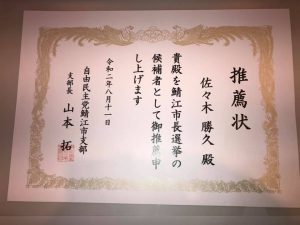 推薦状
佐々木 勝久 殿
貴殿を鯖江市長選挙の
候補者として御推薦申
し上げます
令和二年八月十一日
自由民主党鯖江市支部
支部長 山本 拓